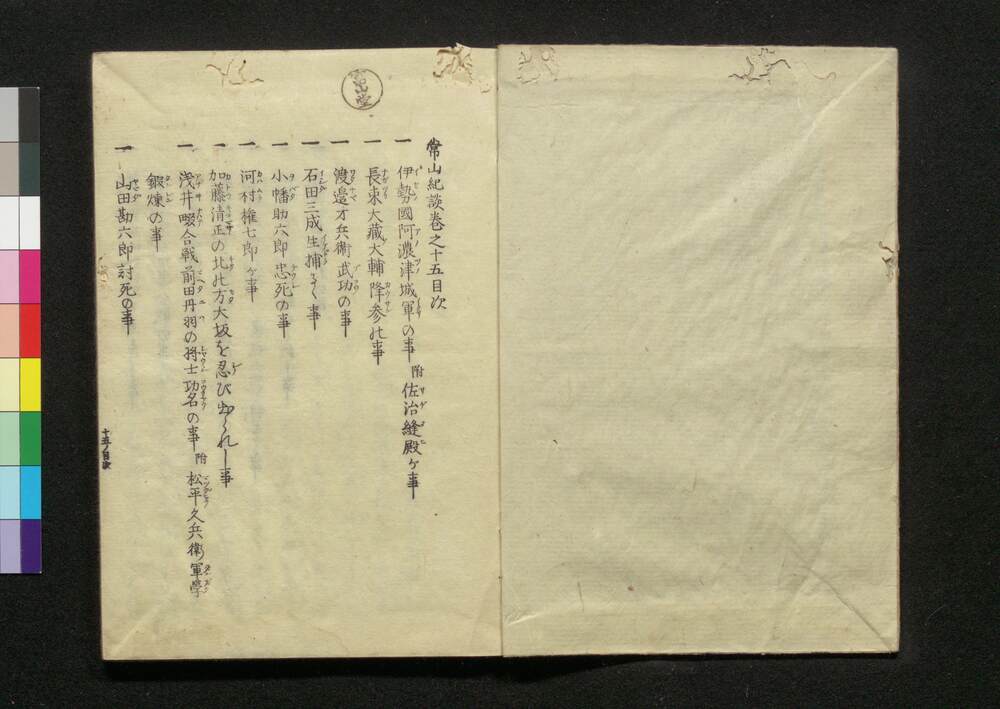 常山紀談巻之十五目次
一 伊勢國阿濃津城軍の事 附 佐治縫殿ケ事
一 長束大藏大輔降参の事
一 渡邉才兵衛武功の事
一 石田三成生捕るゝ事
一 小幡助六郎忠死の事
一 河村権七郎ケ事
一 加藤清正の北の方大坂を忍び出られし事
一 浅井畷合戦前田丹羽の将士功名の事 附 松平久兵衛軍學
鍛煉の事
一 山田勘六郎討死の事
十五ノ目次